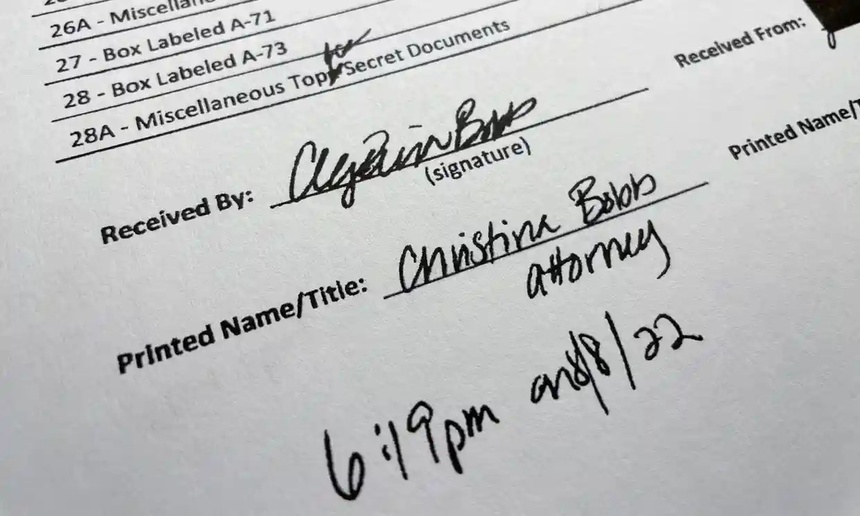 26A - Miscellan
27 - Box Labeled A-71
28 - Box Labeled A-73
28A - Miscellaneous Top Secret Documents
Received By:
(signature)
Printed Name/Title: Christina Bobb
attorney
6:19pm on 8/8/22
Received From:
Printed Name/T